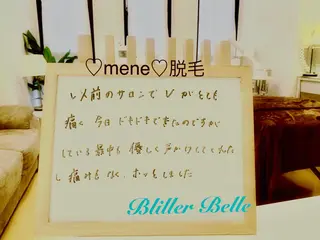 ♡mene♡脱毛
以前のサロンでVがとても
痛く 今日 ドキドキできたのですが
している最中も 優しく声かけしてくれた
し 痛みもなく、ホッとしました
Bliller Belle